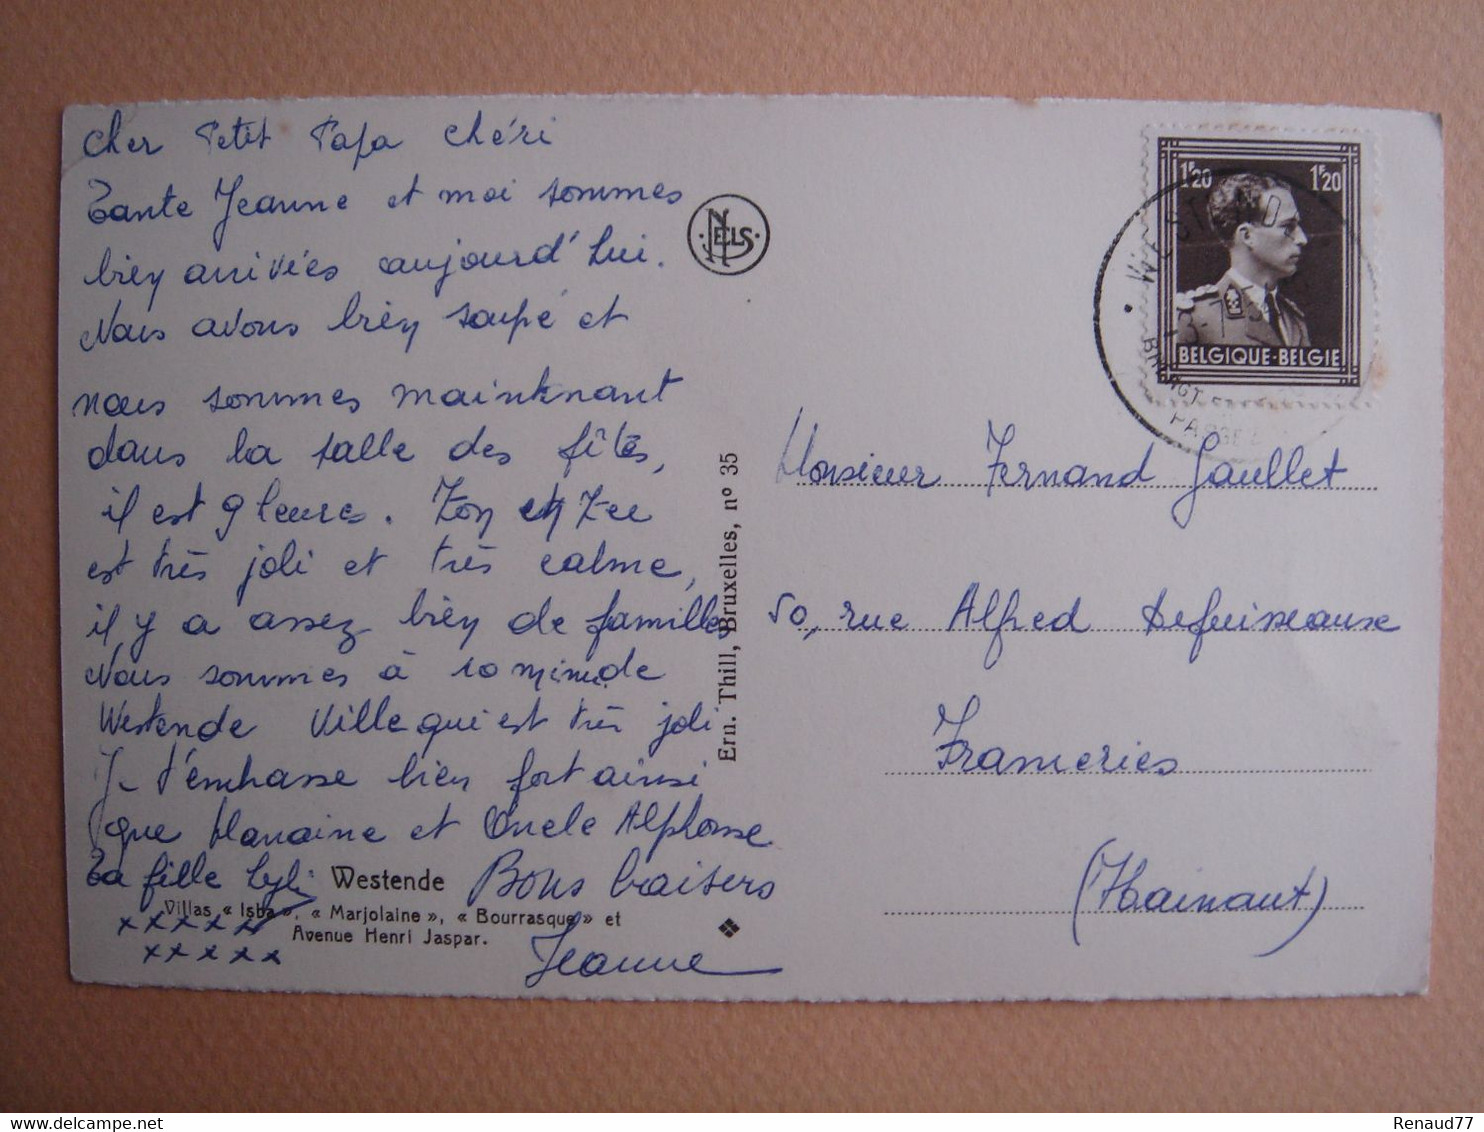 Cher Petit Papa Chéri
Tante Jeanne et moi sommes
bien arrivées aujourd'hui.
Nous avons bien soupé et
nous sommes maintenant
dans la salle des fêtes,
il est 9 heures. Zon en Zee
est très joli et très calme,
il y a assez bien de famille
Nous sommes à 10 min de
Westende ville qui est très joli
Je t'embrasse bien fort ainsi
que Maraine et Oncle Alphonse
Ta fille Lyli Bons baisers
x x x x x
x x x x x
Jeanne
Westende
Villas « Isba », « Marjolaine », « Bourrasque » et
Avenue Henri Jaspar.
NELS
Ern. Thill, Bruxelles, nº 35
1F20 1F20
BELGIQUE-BELGIE
WESTENDE
Monsieur Fernand Gaullet
50, rue Alfred Defuisseaux
Frameries
(Hainaut)
Renaud77